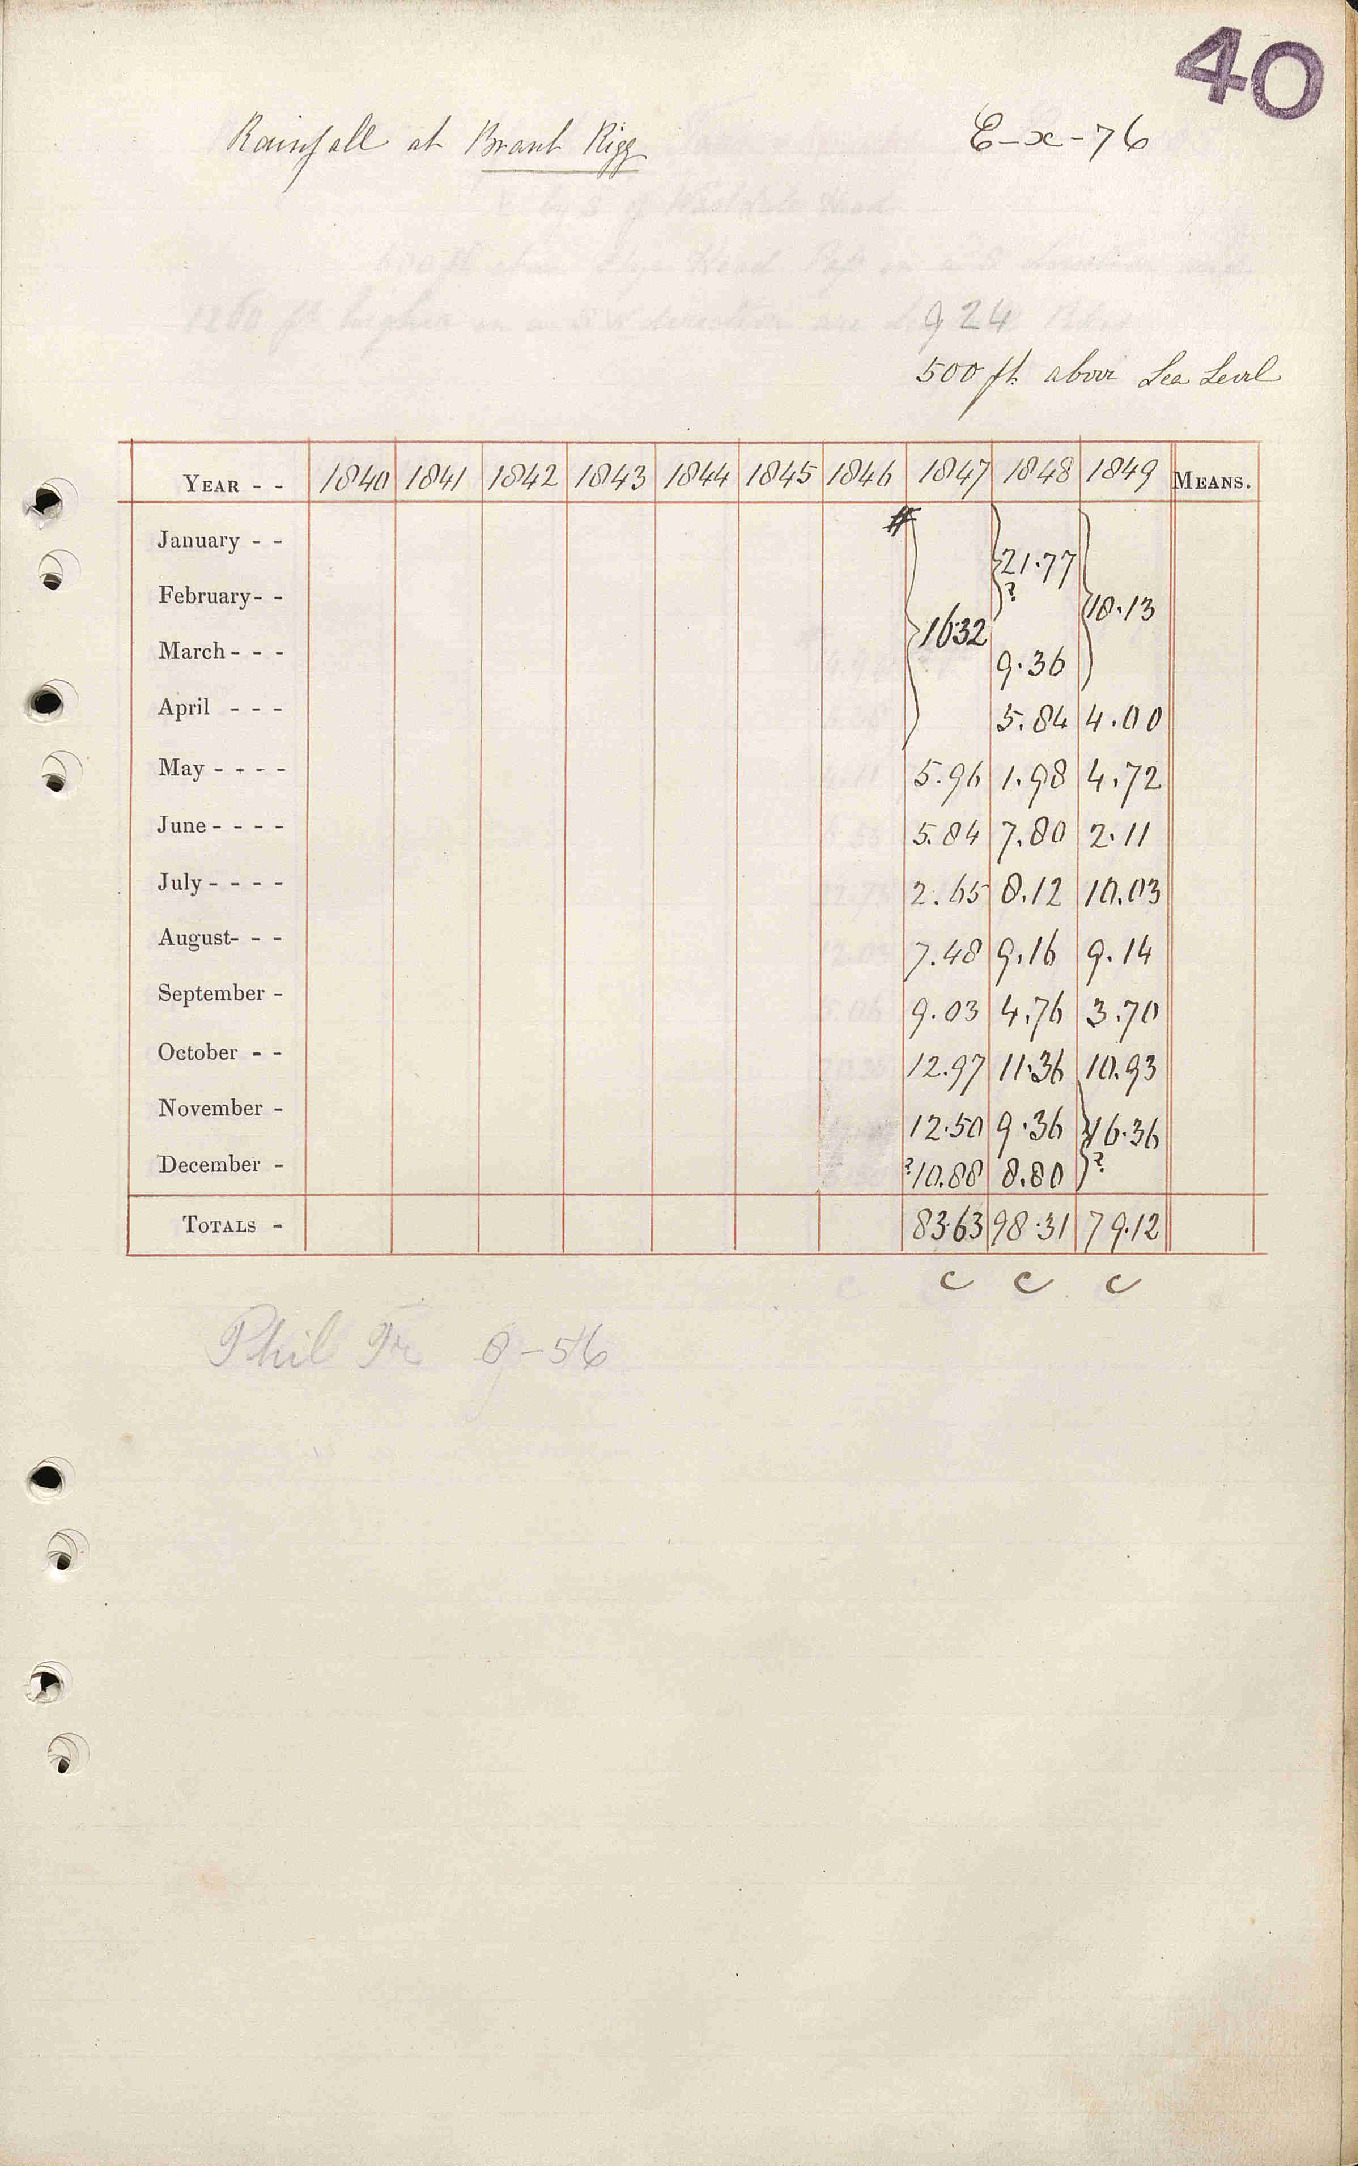 40
Rainfall at Brant Rigg E-x-76
924
500 ft above Sea Level
YEAR - - 1840 1841 1842 1843 1844 1845 1846 1847 1848 1849 MEANS.
January - - #
21.77
February - - ? 18.13
16.32
March - - - 9.36
April - - - 5.84 4.00
May - - - - 5.96 1.98 4.72
June - - - - 5.84 7.80 2.11
July - - - - 2.65 8.12 10.03
August - - - 7.48 9.16 9.14
September - 9.03 4.76 3.70
October - - 12.97 11.36 10.93
November - 12.50 9.36 16.36
December - ?10.88 8.80 ?
TOTALS - 83.63 98.31 79.12
c c c
Phil Tr 9-56